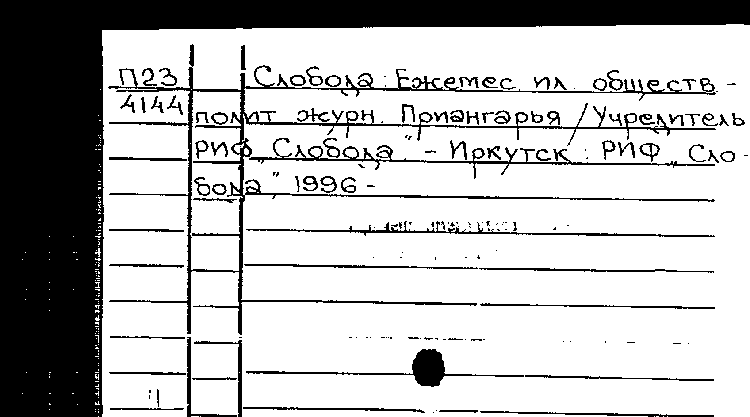 П23
4144
Слобода : Ежемес ил обществ -
полит журн. Приангарья / Учредитель
РИФ „Слобода" - Иркутск : РИФ „Сло-
бода", 1996 -